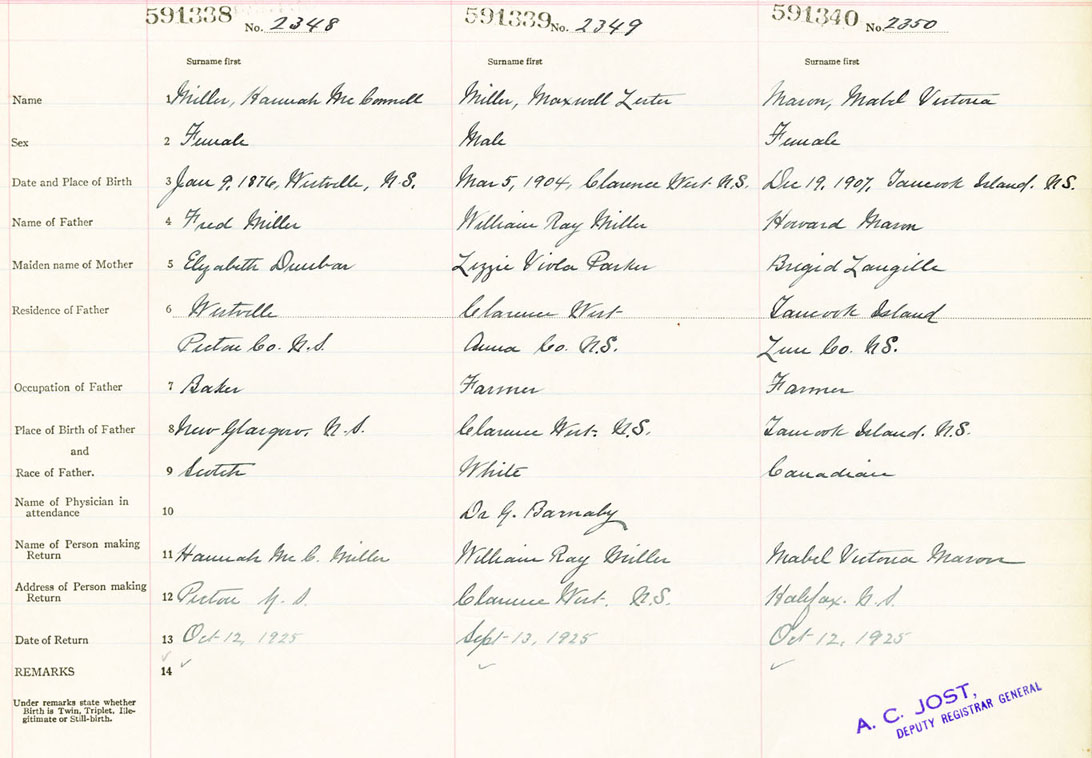 591338 No. 2348 591339 No. 2349 591340 No. 2350
Surname first Surname first Surname first
Name 1 Miller, Hannah McConnell Miller, Maxwell Lester Mason, Mabel Victoria
Sex 2 Female Male Female
Date and Place of Birth 3 Jan 9, 1876, Westville, N.S. Mar 5, 1904, Clarence West N.S. Dec 19, 1907, Tancook Island. N.S.
Name of Father 4 Fred Miller William Ray Miller Howard Mason
Maiden name of Mother 5 Elizabeth Dunbar Lizzie Viola Parker Brigid Langille
Residence of Father 6 Westville Clarence West Tancook Island
Pictou Co. N.S. Anna Co. N.S. Lun Co. N.S.
Occupation of Father 7 Baker Farmer Farmer
Place of Birth of Father 8 New Glasgow, N.S. Clarence West. N.S. Tancook Island. N.S.
and
Race of Father. 9 Scotch White Canadian
Name of Physician in
attendance 10 Dr G. Barnaby
Name of Person making
Return 11 Hannah Mc C. Miller William Ray Miller Mabel Victoria Mason
Address of Person making
Return 12 Pictou N.S. Clarence West. N.S. Halifax. N.S.
Date of Return 13 Oct 12, 1925 Sept 13, 1925 Oct 12, 1925
REMARKS 14
Under remarks state whether
Birth is Twin, Triplet, Ille-
gitimate or Still-birth.
A. C. JOST,
DEPUTY REGISTRAR GENERAL